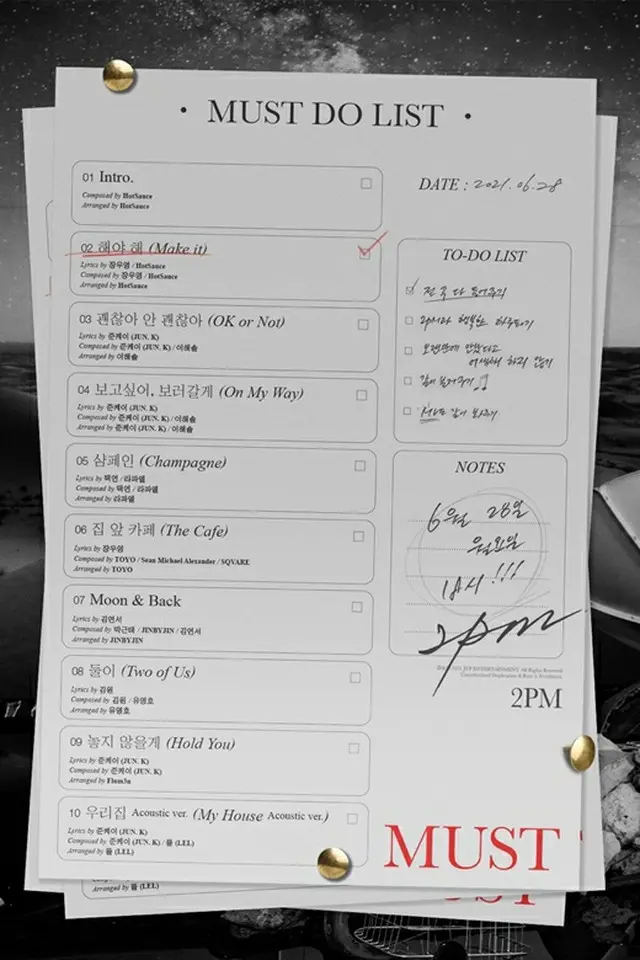 • MUST DO LIST •
DATE : 2021.06.28
01 Intro.
Composed by HotSauce
Arranged by HotSauce
02 해야 해 (Make it)
Lyrics by 장우영 / HotSauce
Composed by 장우영 / HotSauce
Arranged by HotSauce
03 괜찮아 안 괜찮아 (OK or Not)
Lyrics by 준케이 (JUN. K)
Composed by 준케이 (JUN. K) / 이해솔
Arranged by 이해솔
04 보고싶어, 보러갈게 (On My Way)
Lyrics by 준케이 (JUN. K)
Composed by 준케이 (JUN. K) / 이해솔
Arranged by 준케이 (JUN. K) / 이해솔
05 샴페인 (Champagne)
Lyrics by 택연 / 라파엘
Composed by 택연 / 라파엘
Arranged by 라파엘
06 집 앞 카페 (The Cafe)
Lyrics by 장우영
Composed by TOYO / Sean Michael Alexander / SQVARE
Arranged by TOYO
07 Moon & Back
Lyrics by 김연서
Composed by 박근태 / JINBYJIN / 김연서
Arranged by JINBYJIN
08 둘이 (Two of Us)
Lyrics by 김원
Composed by 김원 / 유영호
Arranged by 유영호
09 놓지 않을게 (Hold You)
Lyrics by 준케이 (JUN. K)
Composed by 준케이 (JUN. K)
Arranged by Flum3n
10 우리집 Acoustic ver. (My House Acoustic ver.)
Lyrics by 준케이 (JUN. K)
Composed by 준케이 (JUN. K) / 뜰 (LEL)
Arranged by 뜰 (LEL)
TO-DO LIST
전 곡 다 들어주기
2PM이랑 행복한 하루되기
오랜만에 만났다고
어색해 하지 않기
같이 놀아주기
같이 봐주기
NOTES
6월 28일
월요일
18시 !!!
2pm
2PM
MUST
Arranged by 뜰 (LEL)